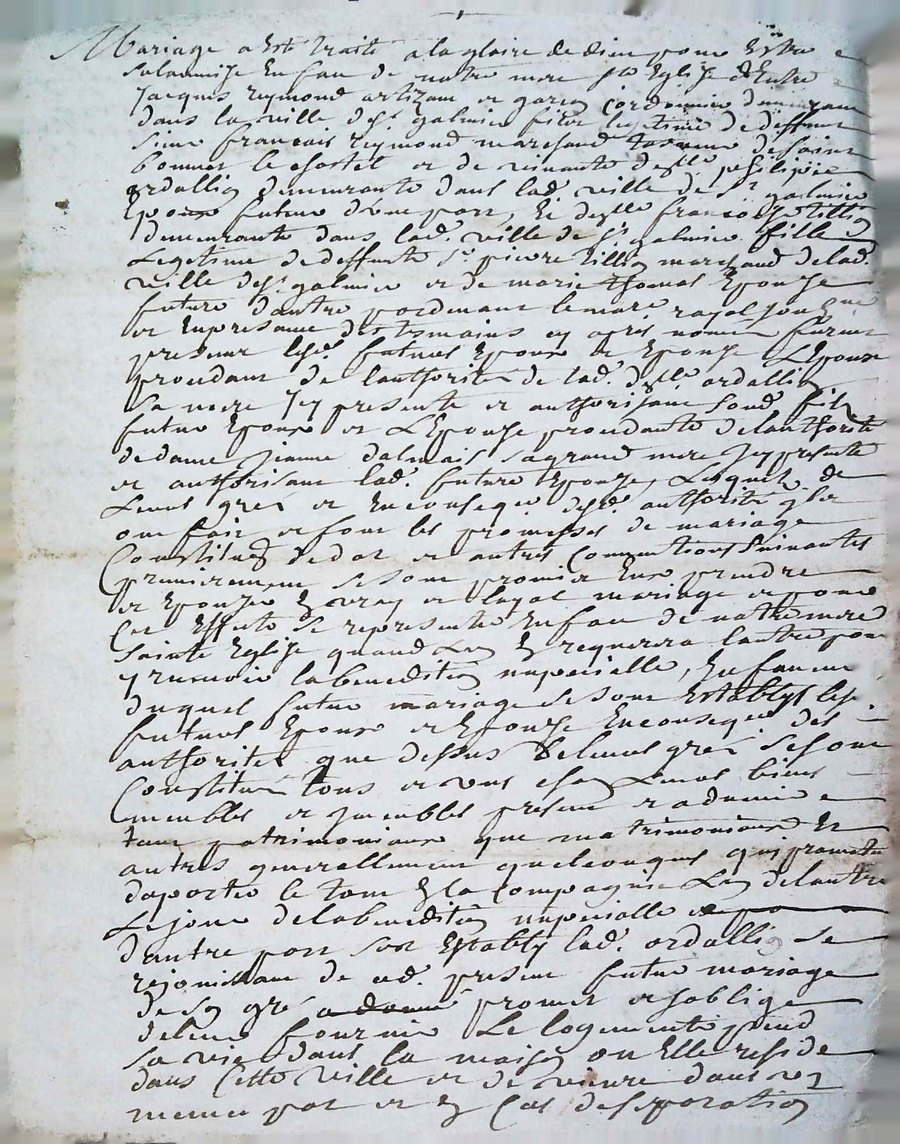 Mariage a Esté traité a la gloire de dieu pour Estre
solannisé En face de notre mere ste Eglise Entre
Jacques reymond artizan et garcon cordonnier demeurant
dans la ville de st galmier fils legitime de deffunt
sieur francois reymond marchand de saint
bonnet le chastel et de vivante delle philipie
ordallion demeurante dans lad. ville de st galmier
Epoux futur d'une part, Et delle francoise tillion
demeurante dans lad. ville de st galmier fille
Legetime de deffunt sr pierre tillion marchand de lad.
ville de st galmier et de marie thomas Epouze
future dautre part pardevant le notaire royal soussigné
et En presance des temoins cy apres nommés furent
presens lesd. futurs Epoux et Epouze L'Epoux
procedant de l'authorité de lad. delle ordallion
sa mere Icy presente et authorisant sond. fils
futur Epoux et L'Epouze procedante de lauthorité
de dame Jeanne dalmais sa grand mere Icy presente
et authorisant lad. future Epouze, Lesquels de
Leurs grés et En conseqce desd. authorités
ont fait et font les promesses de mariage
Constitution de dot et autres Conventions suivantes
premierement se sont promis Eux prendre
et Epouzer En vray et loyal mariage et pour
Cet Effet se representer En face de notre mere
Sainte Eglise quand Lun En requerra lautre pour
y recevoir la benediction nuptialle, En faveur
duquel futur mariage se sont Establys les
futurs Epoux et Epouze En conseqce des
authorités que dessus de leurs grés se sont
Constitués tous et uns chacuns Leurs biens
meubles et Jmeubles presens et advenir
tant patrimoniaux que matrimoniaux Et
autres generallement quelconques quis promettent
daporter le tout En la Compagnie Lun de lautre
Le jour de la benediction nuptialle
dautre part sest Establÿ lad. ordallion se
rejouissant de cd. present futur mariage
de son gré a donné promet et soblige
de leur fournir Le logement pend
sa vie dans la maison ou Elle reside
dans Cette ville et de vivre dans un
meme pot et En Cas de separation